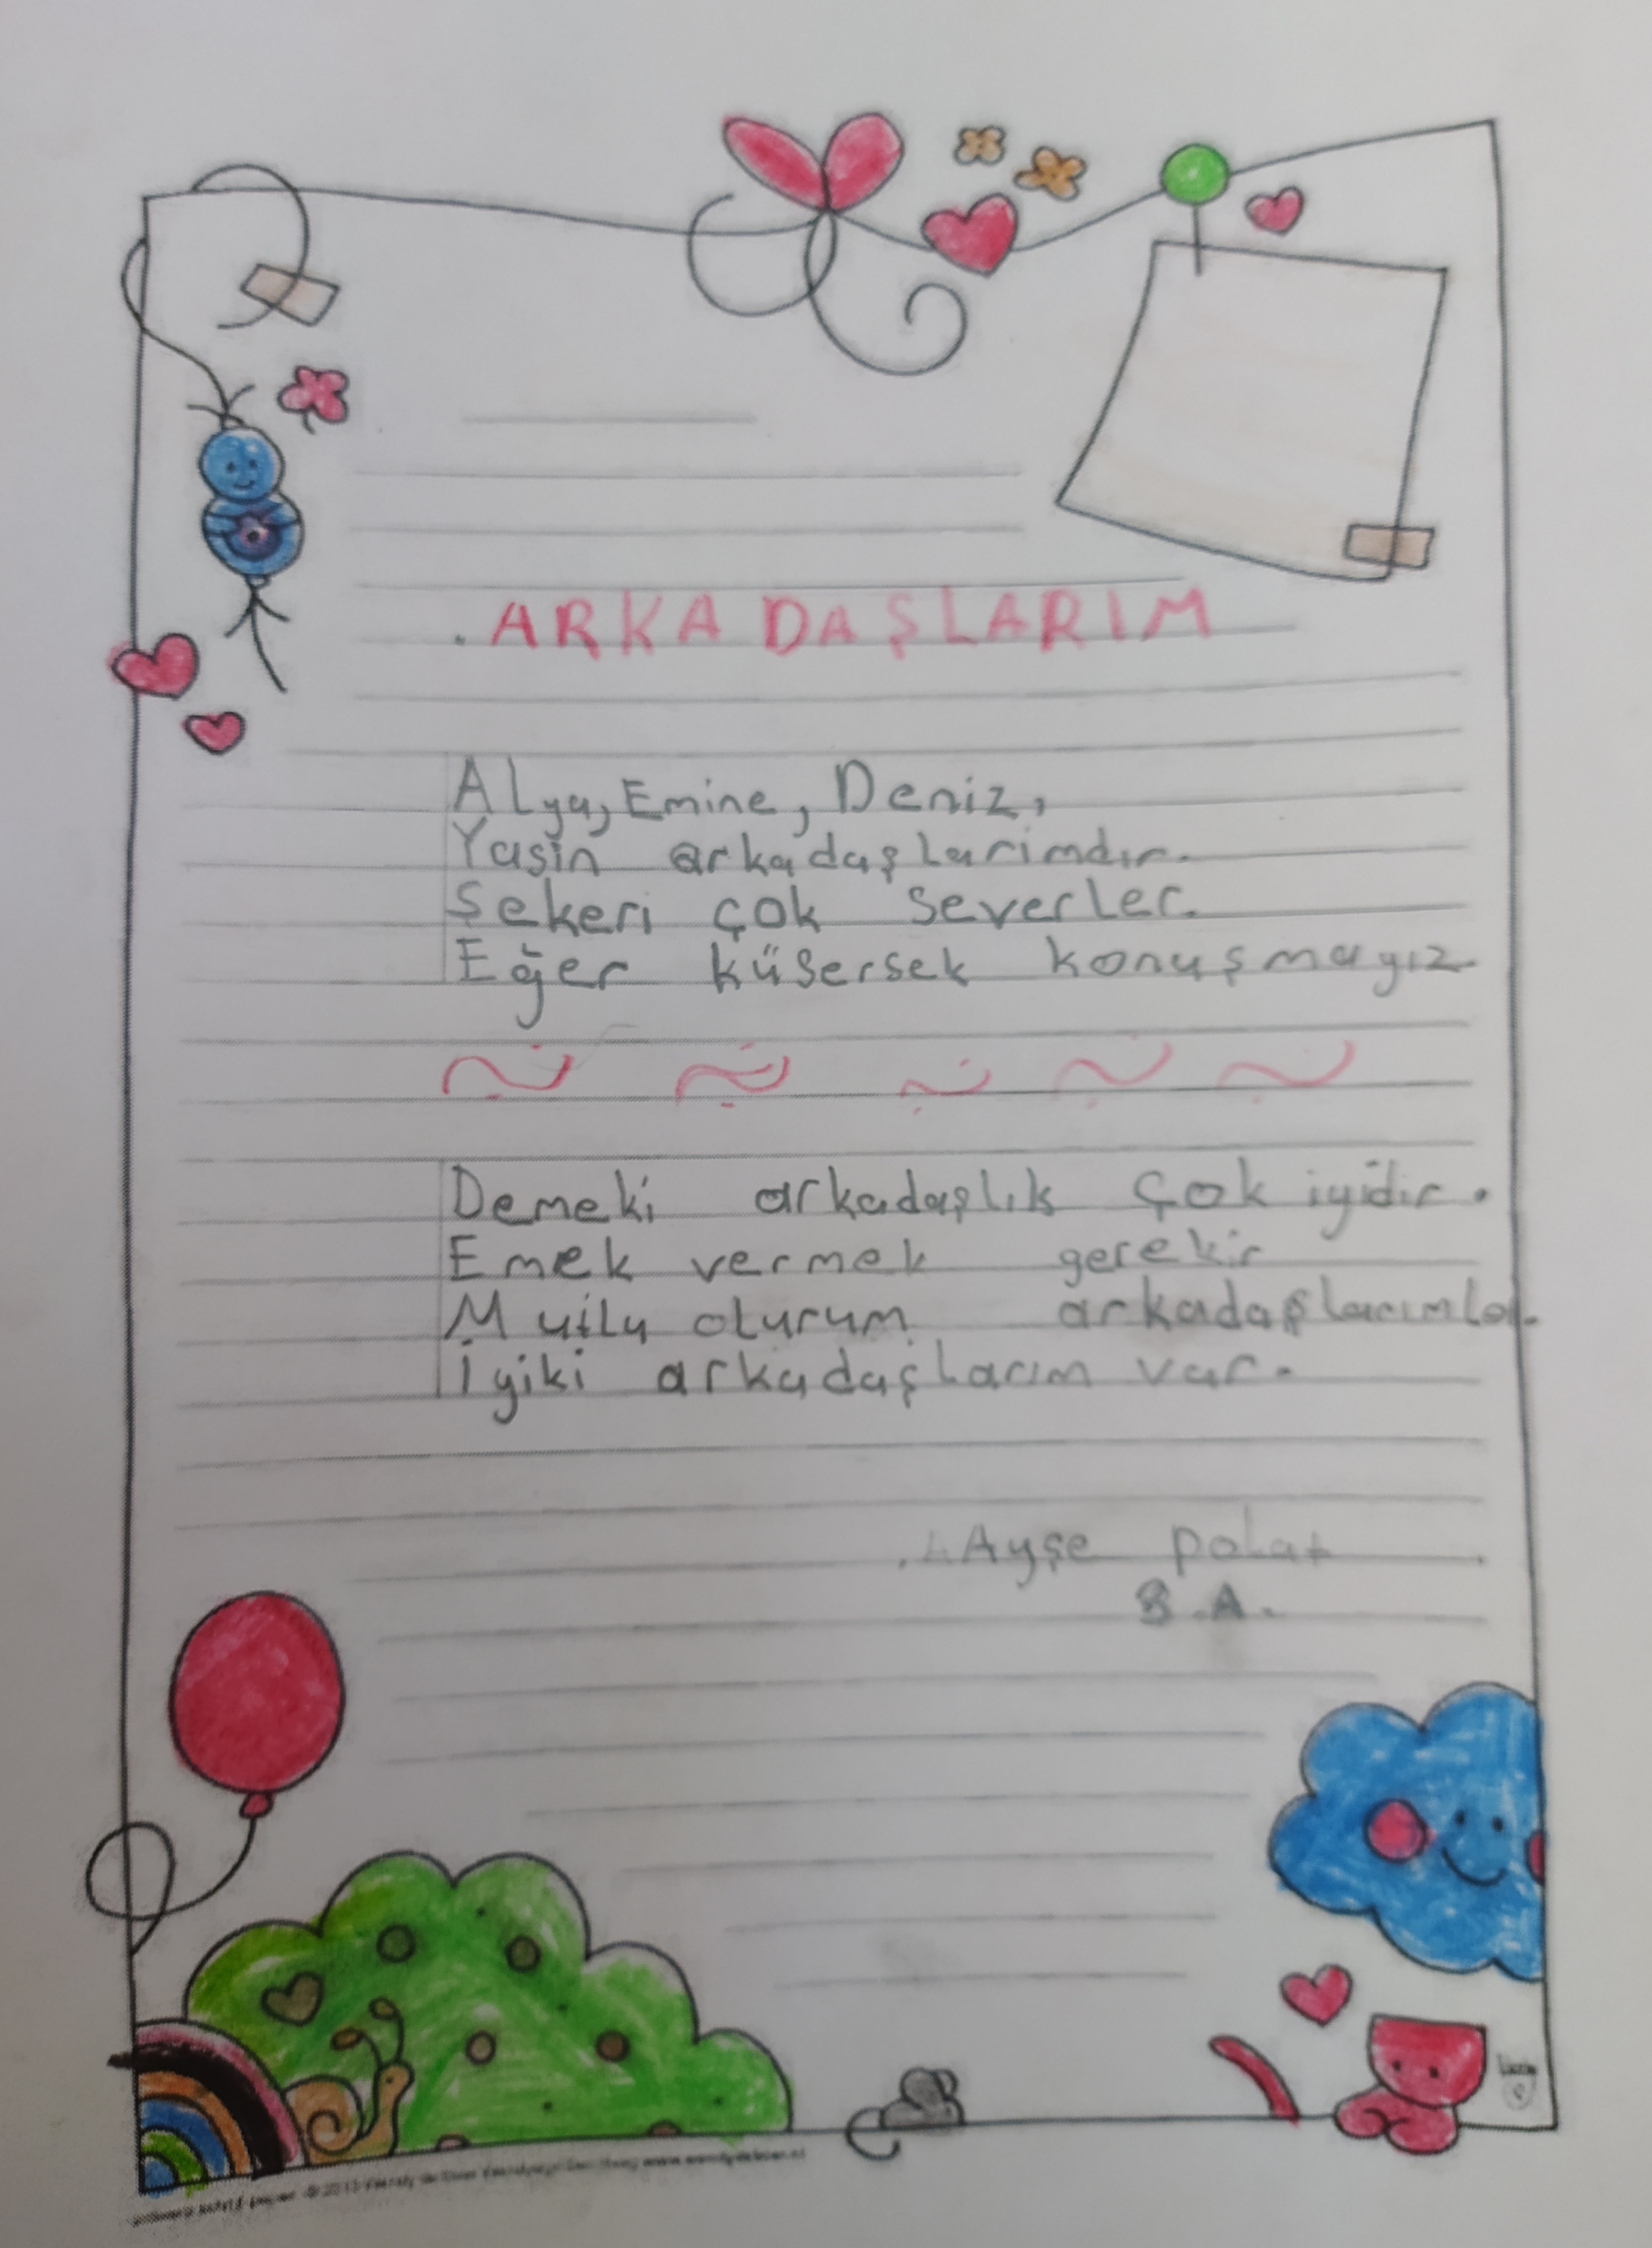 ARKADAŞLARIM
Alya, Emine, Deniz,
Yasin arkadaşlarimdır.
Şekeri çok severler.
Eğer küsersek konuşmayız.
Demeki arkadaşlık çok iyidir.
Emek vermek gerekir
Mutlu olurum arkadaşlarımla.
İyiki arkadaşlarım var.
Ayşe polat